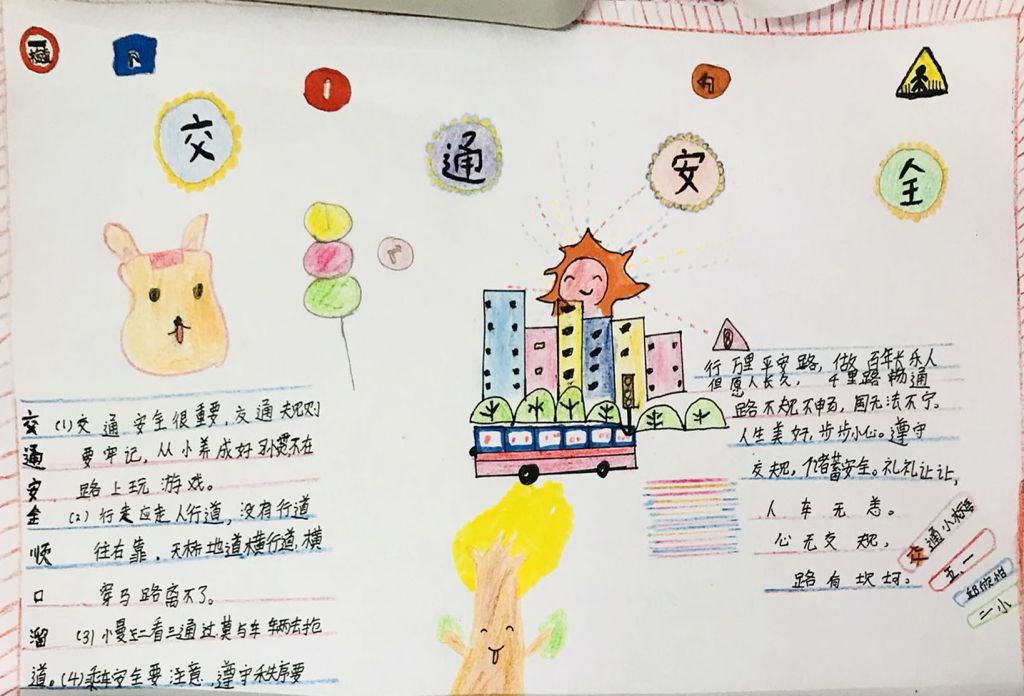 交 通 安 全
交 (1)交通安全很重要,交通规则
通 要牢记,从小养成好习惯不在
安 路上玩游戏。
全 (2)行走应走人行道,没有行道
顺 往右靠,天桥地道横行道,横
口 穿马路离不了。
溜 (3)慢二看三通过,莫与车辆去抢
道。(4)乘车安全要注意,遵守秩序要
行万里平安路,做百年长乐人
但愿人长久,千里路畅通
路不规不畅,国无法不宁。
人生美好,步步小心。遵守
交规,储蓄安全。礼礼让让,
人车无恙。
心无交规,
路有坎坷。
交通小标语
五、一
二小